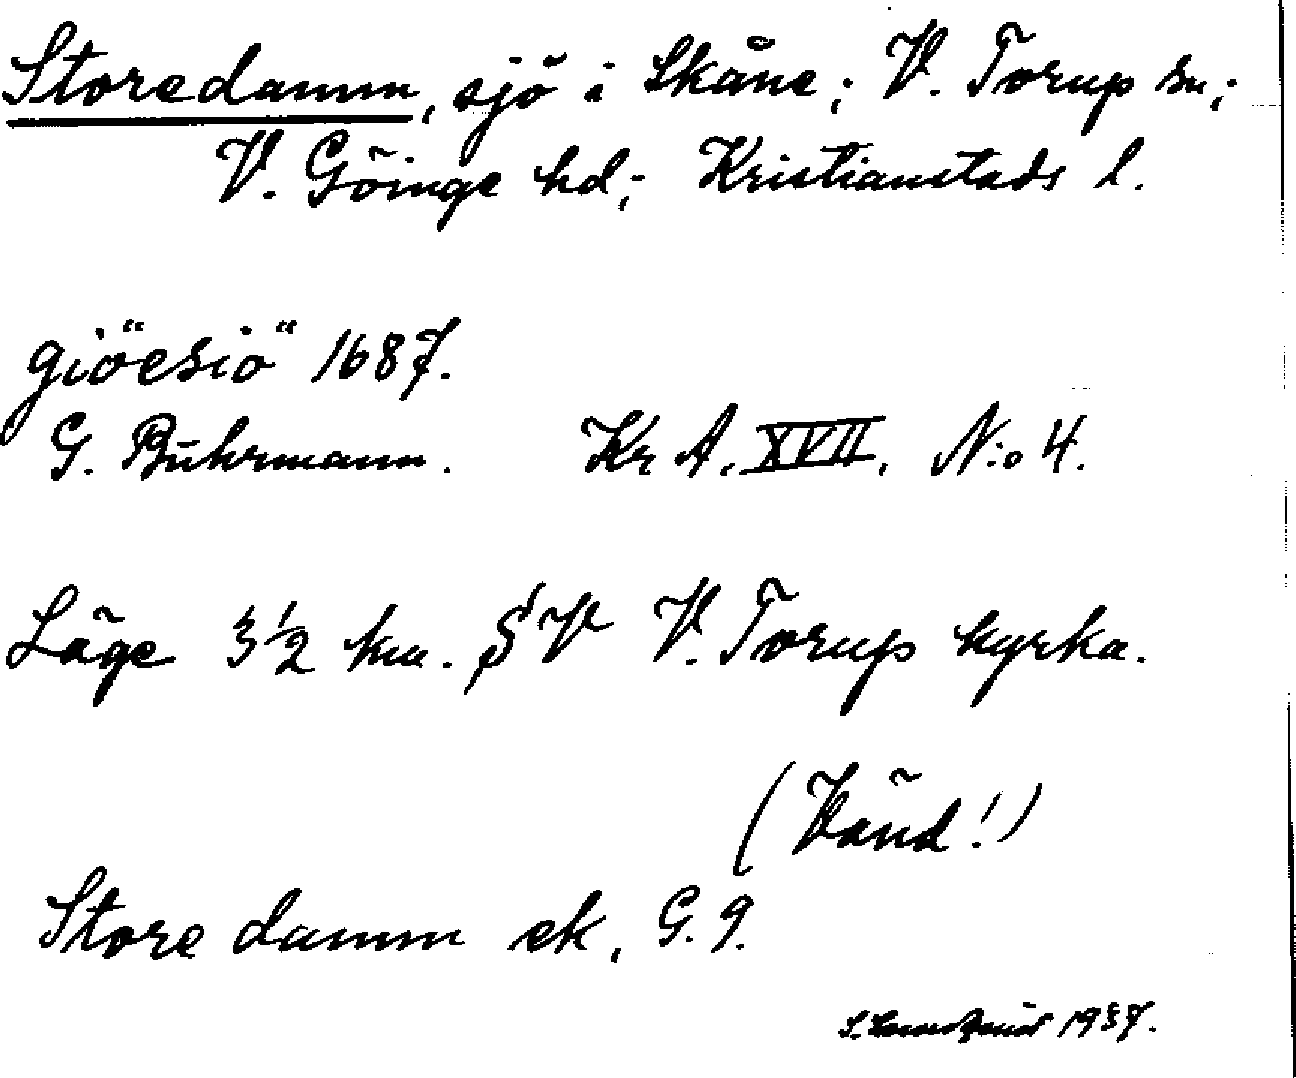 Storedamm, sjö i Skåne; V. Torup sn;
V. Göinge hd; Kristianstads l.
giöesiö 1687.
G. Buhrmann. Kr A. XVII. N:o 4.
Läge 3 1/2 km. SV V. Torup kyrka.
(Vänd!)
Store damm ek. G. 9.
1937.